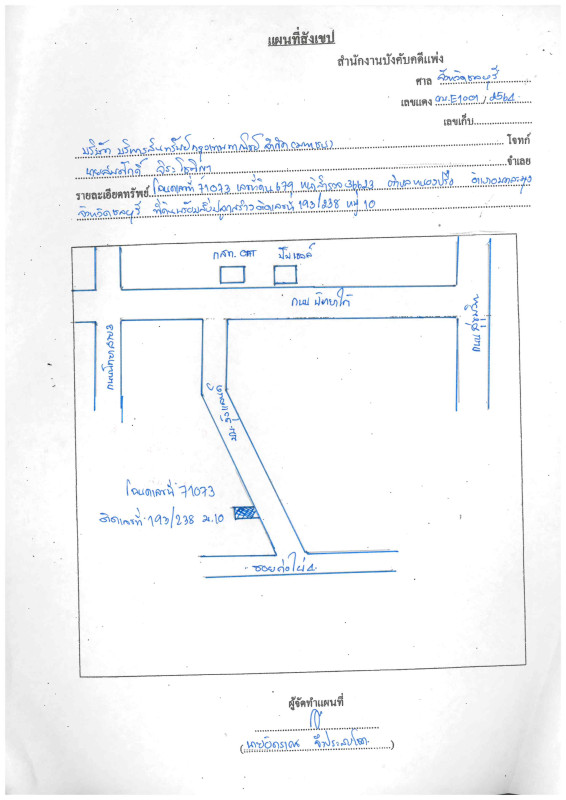 แผนที่สังเขป
สำนักงานบังคับคดีแพ่ง
ศาล จังหวัดชลบุรี
เลขแดง ผบ.E1001 /2564
เลขเก็บ
บริษัท บริหารสินทรัพย์กรุงเทพพาณิชย์ จำกัด (มหาชน) โจทก์
นายสมศักดิ์ จำเลย
รายละเอียดทรัพย์ โฉนดเลขที่ 71073 เลขที่ดิน 679 หน้าสำรวจ ตำบลหนองปรือ อำเภอบางละมุง
จังหวัดชลบุรี ที่ดินพร้อมสิ่งปลูกสร้างติดเลขที่ 193/238 หมู่ 10
กสท. CAT ปั๊มเชลล์
ถนน พัทยาใต้
ถนน สุขุมวิท
ถนนพัทยาสาย
โฉนดเลขที่ 71073
ติดเลขที่ 193/238 ม.10
ผู้จัดทำแผนที่